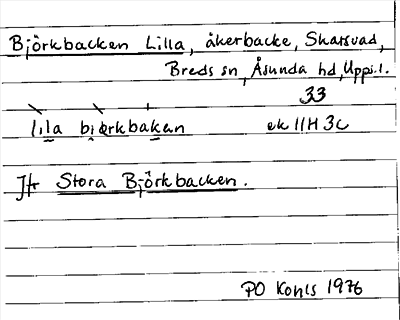 Björkbacken Lilla, åkerbacke, Skarsvad,
Breds sn, Åsunda hd, Uppsl. l.
33
lila bjørkbakan ek 11H 3c
Jfr Stora Björkbacken.
PO Konls 1976